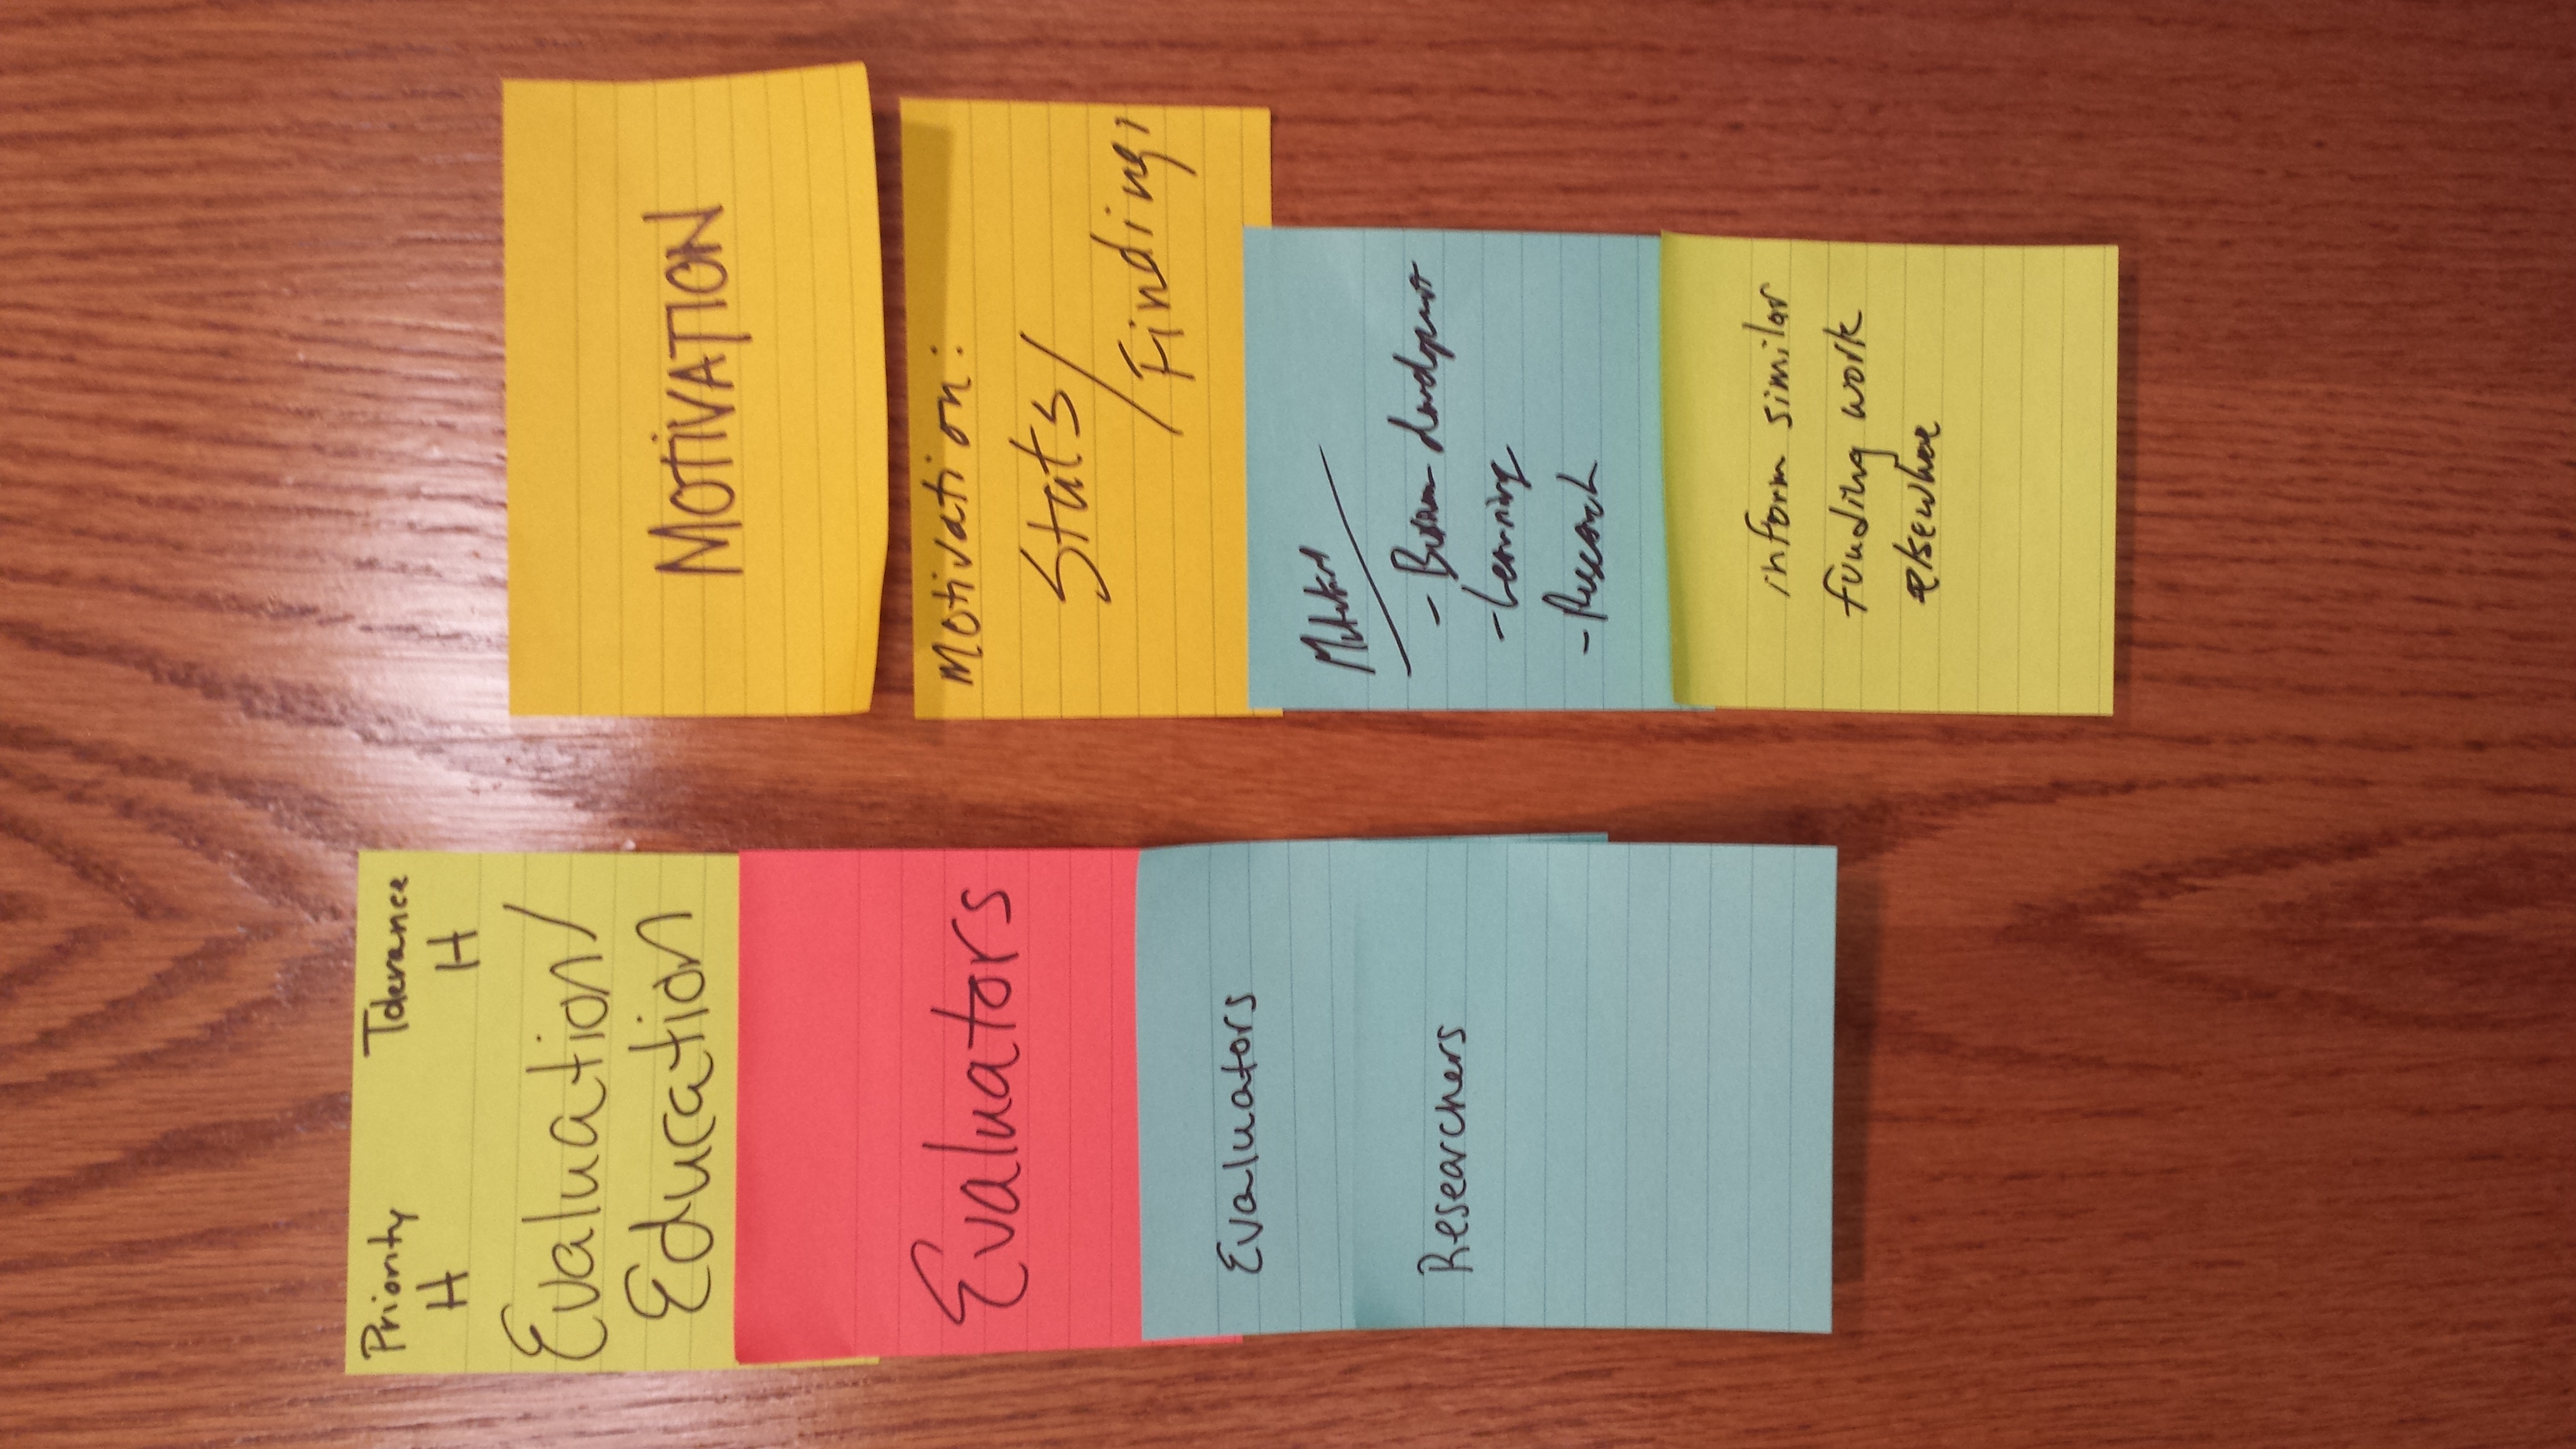 Priority Tolerance
H H
Evaluation/
Education
Evaluators
Evaluators
Researchers
MOTIVATION
Motivation:
Stats/
Findings
Motivations
- Business development
- Learning
- Research
inform similar
funding work
elsewhere